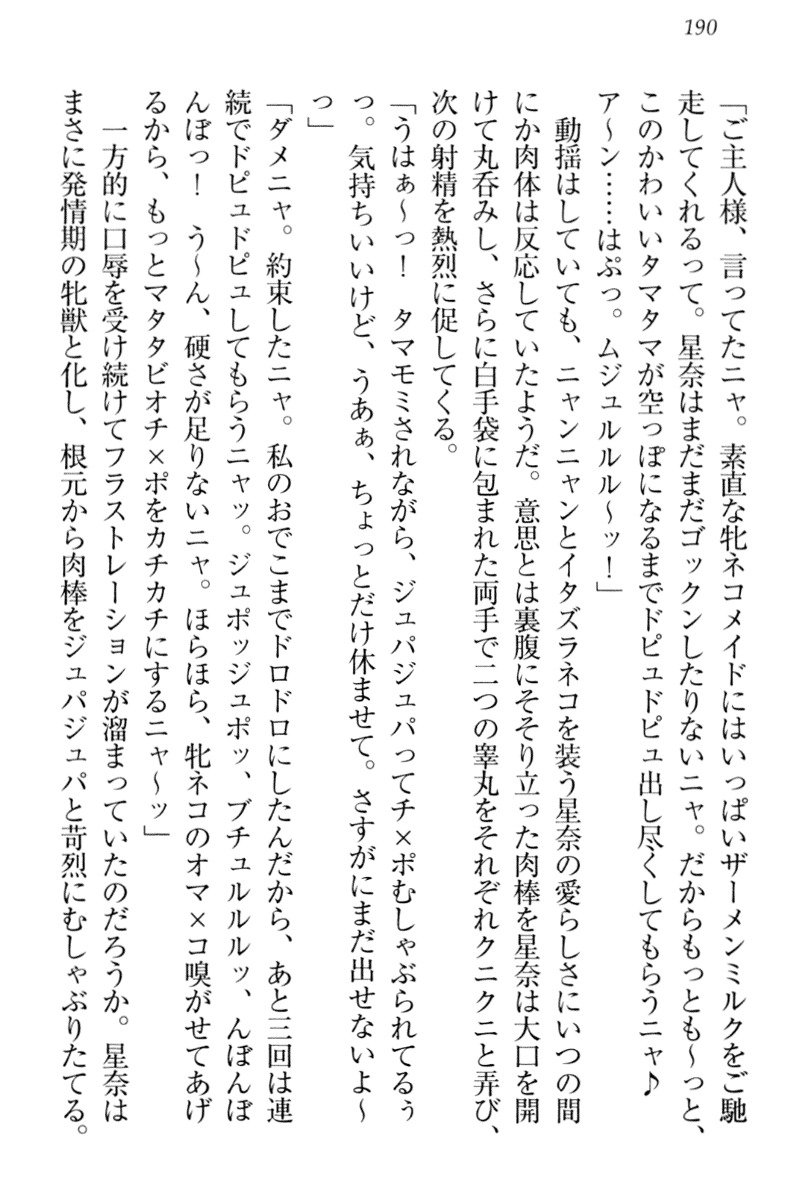 190
「ご主人様、言ってたニャ。素直な牝ネコメイドにはいっぱいザーメンミルクをご馳
走してくれるって。星奈はまだまだゴックンしたりないニャ。だからもっとも～っと、
このかわいいタマタマが空っぽになるまでドピュドピュ出し尽くしてもらうニャ♪
ア～ン……はぷっ。ムジュルルル～ッ！」
　動揺はしていても、ニャンニャンとイタズラネコを装う星奈の愛らしさにいつの間
にか肉体は反応していたようだ。意思とは裏腹にそそり立った肉棒を星奈は大口を開
けて丸呑みし、さらに白手袋に包まれた両手で二つの睾丸をそれぞれクニクニと弄び、
次の射精を熱烈に促してくる。
「うはぁ～っ！　タマモミされながら、ジュパジュパってチ×ポむしゃぶられてるぅ
っ。気持ちいいけど、うあぁ、ちょっとだけ休ませて。さすがにまだ出せないよ～
っ」
「ダメニャ。約束したニャ。私のおでこまでドロドロにしたんだから、あと三回は連
続でドピュドピュしてもらうニャッ。ジュポッジュポッ、ブチュルルルッ、んぼんぼ
んぼっ！　う～ん、硬さが足りないニャ。ほらほら、牝ネコのオマ×コ嗅がせてあげ
るから、もっとマタタビオチ×ポをカチカチにするニャ～ッ」
　一方的に口辱を受け続けてフラストレーションが溜まっていたのだろうか。星奈は
まさに発情期の牝獣と化し、根元から肉棒をジュパジュパと苛烈にむしゃぶりたてる。